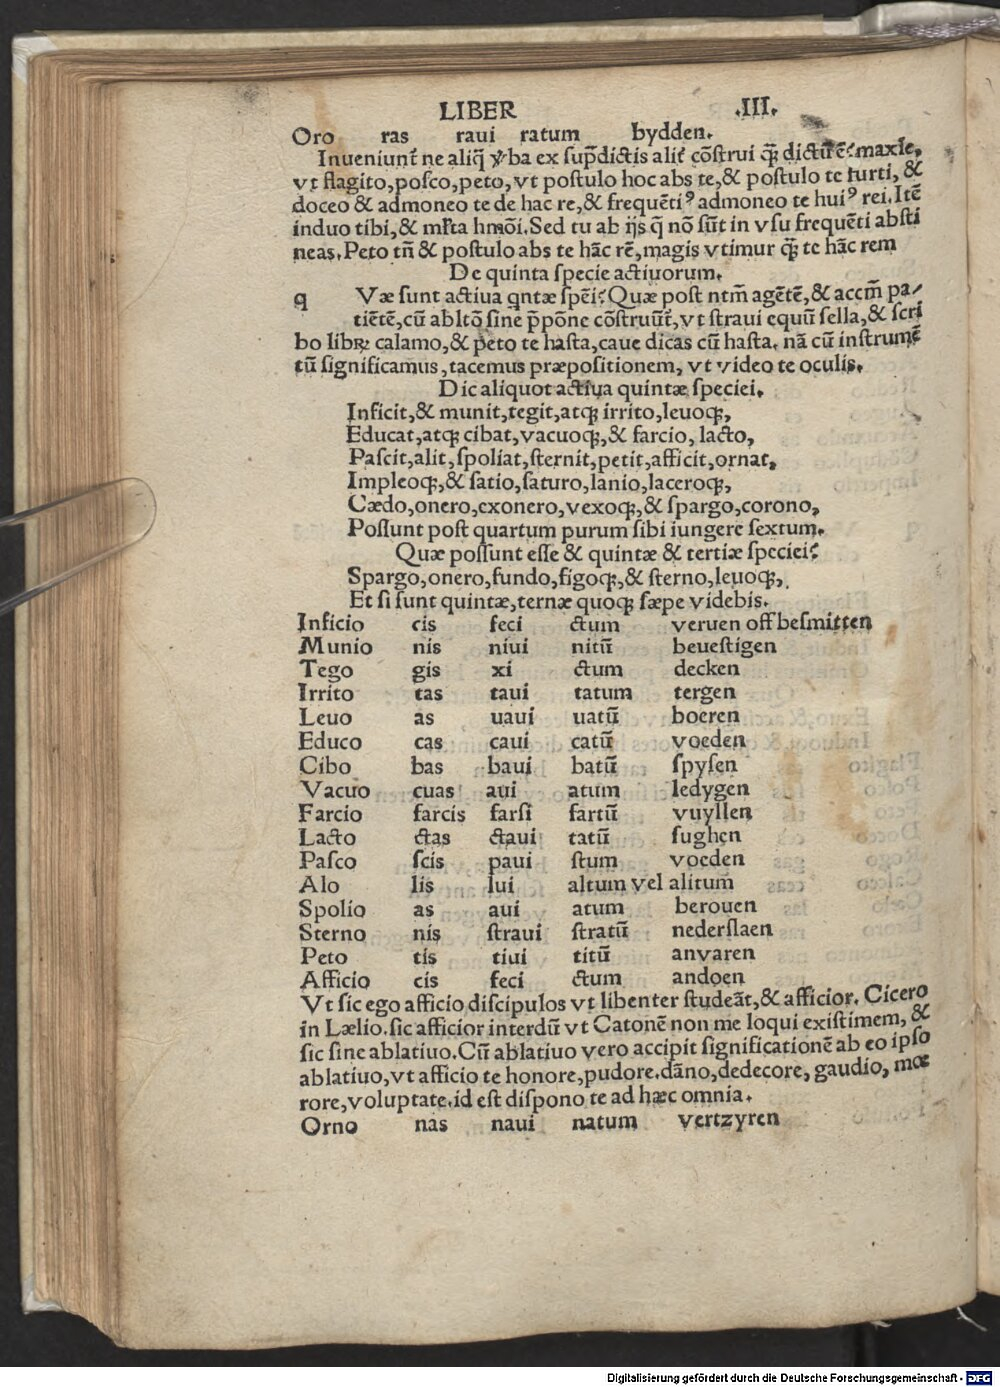 LIBER .III.
Oro ras raui ratum bydden.
Inueniunt᷑ ne aliq̄ v̄ba ex sup̄dictis alit᷑ cōstrui q̄ꝫ dictū ē? maxīe,
vt flagito, posco, peto, vt postulo hoc abs te, & postulo te furti, &
doceo & admoneo te de hac re, & frequēti⁹ admoneo te hui⁹ rei. Itē
induo tibi, & ml̄ta hmōi. Sed tu ab ijs q̄ nō sūt in vsu frequēti absti
neas. Peto tn̄ & postulo abs te hāc rē, magis vtimur q̄ꝫ te hāc rem
De quinta specie actiuorum.
q Væ sunt actiua qntæ spēi? Quæ post ntm̄ agētē, & accm̄ pa/
tiētē, cū abltō sine p̄pōne cōstruūt᷑, vt straui equū sella, & scri
bo libꝝ calamo, & peto te hasta, caue dicas cū hasta. nā cū instrumē
tū significamus, tacemus præpositionem, vt video te oculis.
Dic aliquot actiua quintæ speciei.
Inficit, & munit, tegit, atqꝫ irrito, leuoqꝫ,
Educat, atqꝫ cibat, vacuoqꝫ, & farcio, lacto,
Pascit, alit, spoliat, sternit, petit, afficit, ornat,
Impleoqꝫ, & satio, saturo, lanio, laceroqꝫ,
Cædo, onero, exonero, vexoqꝫ, & spargo, corono,
Possunt post quartum purum sibi iungere sextum.
Quæ possunt esse & quintæ & tertiæ speciei?
Spargo, onero, fundo, figoqꝫ, & sterno, leuoqꝫ,
Et si sunt quintæ, ternæ quoqꝫ sæpe videbis.
Inficio cis feci ctum veruen off besmitten
Munio nis niui nitū beuestigen
Tego gis xi ctum decken
Irrito tas taui tatum tergen
Leuo as uaui uatū boeren
Educo cas caui catū voeden
Cibo bas baui batū spysen
Vacuo cuas aui atum ledygen
Farcio farcis farsi fartū vuyllen
Lacto ctas ctaui tatū sughen
Pasco scis paui stum voeden
Alo lis lui altum vel alitum
Spolio as aui atum berouen
Sterno nis straui stratū nederslaen
Peto tis tiui titū anvaren
Afficio cis feci ctum andoen
Vt sic ego afficio discipulos vt libenter studeāt, & afficior. Cicero
in Lælio. sic afficior interdū vt Catonē non me loqui existimem, &
sic sine ablatiuo. Cū ablatiuo vero accipit significationē ab eo ipso
ablatiuo, vt afficio te honore, pudore. dāno, dedecore, gaudio, mœ
rore, voluptate. id est dispono te ad hæc omnia.
Orno nas naui natum vertzyren
Digitalisierung gefördert durch die Deutsche Forschungsgemeinschaft - DFG